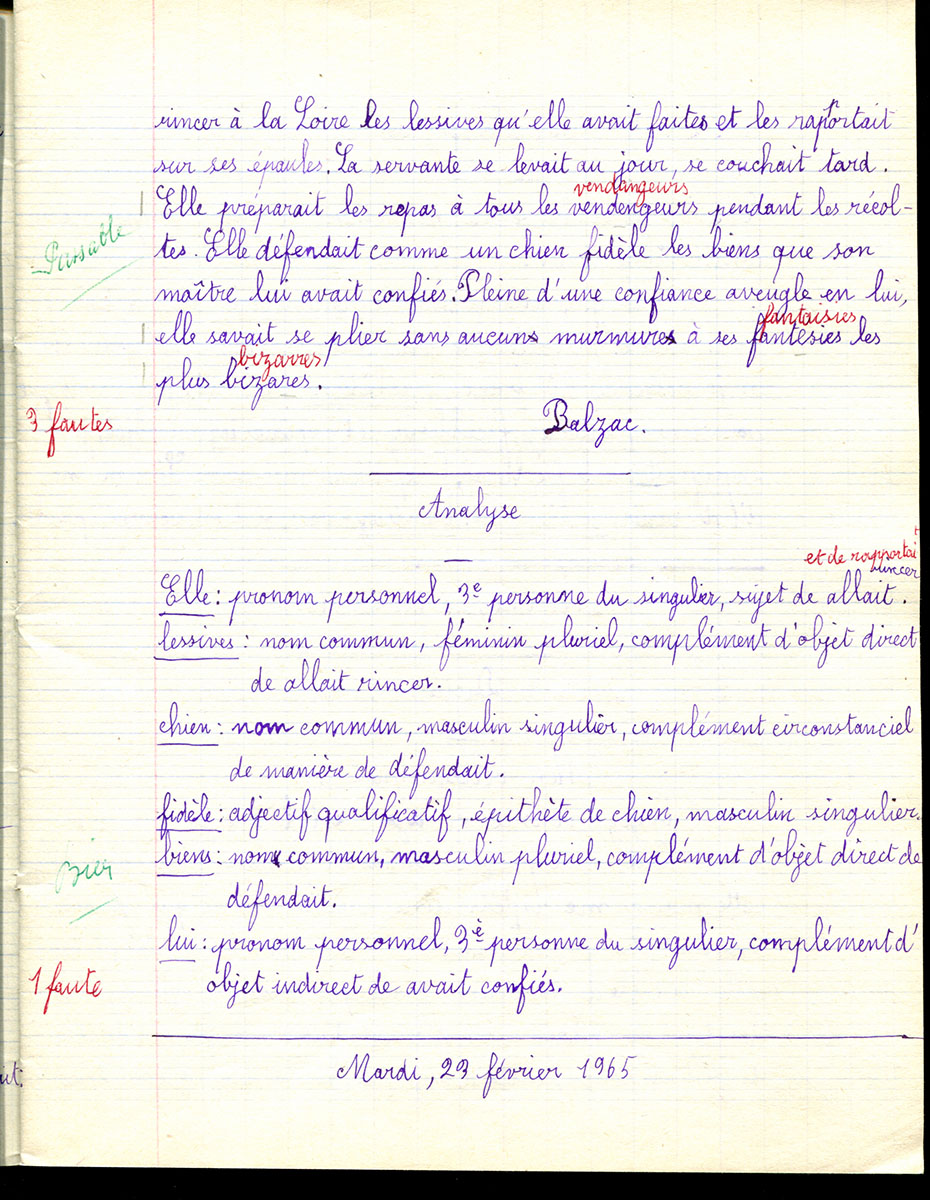 rincer à la Loire les lessives qu'elle avait faites et les raportait
p
sur ses épaules. La servante se levait au jour, se couchait tard.
vendangeurs
Elle préparait les repas à tous les vendengeurs pendant les récol-
Passable
tes. Elle défendait comme un chien fidèle les biens que son
maître lui avait confiés. Pleine d'une confiance aveugle en lui,
fantaisies
elle savait se plier sans aucuns murmures à ses fantésies les
bizarres
plus bizares.
3 fautes
Balzac.
Analyse
et de rapportai
rincer
Elle : pronom personnel, 3e personne du singulier, sujet de allait.
lessives : nom commun, féminin pluriel, complément d'objet direct
de allait rincer.
chien : nom commun, masculin singulier, complément circonstanciel
de manière de défendait.
fidèle : adjectif qualificatif, épithète de chien, masculin singulier.
Bien
biens : nom commun, masculin pluriel, complément d'objet direct de
défendait.
lui : pronom personnel, 3è personne du singulier, complément d'
1 faute
objet indirect de avait confiés.
Mardi, 23 février 1965